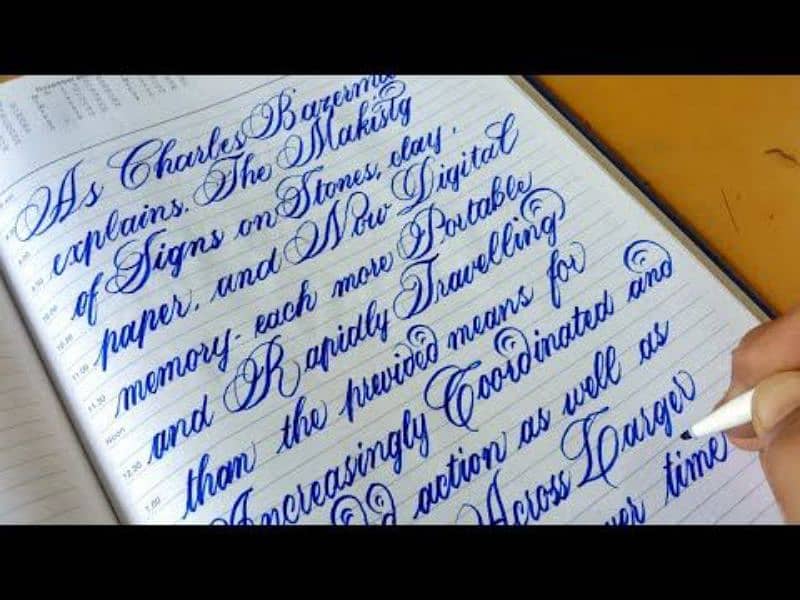 As Charles Bazerma
explains. The Makistg
of Signs on Stones, clay,
paper, and Now Digital
memory- each more Portable
and Rapidly Travelling
than the previded means for
Increasingly Coordinated and
action as well as
Across Larger
over time
9.30
10.00
10.30
11.00
11.30
Noon
12.30
1.00